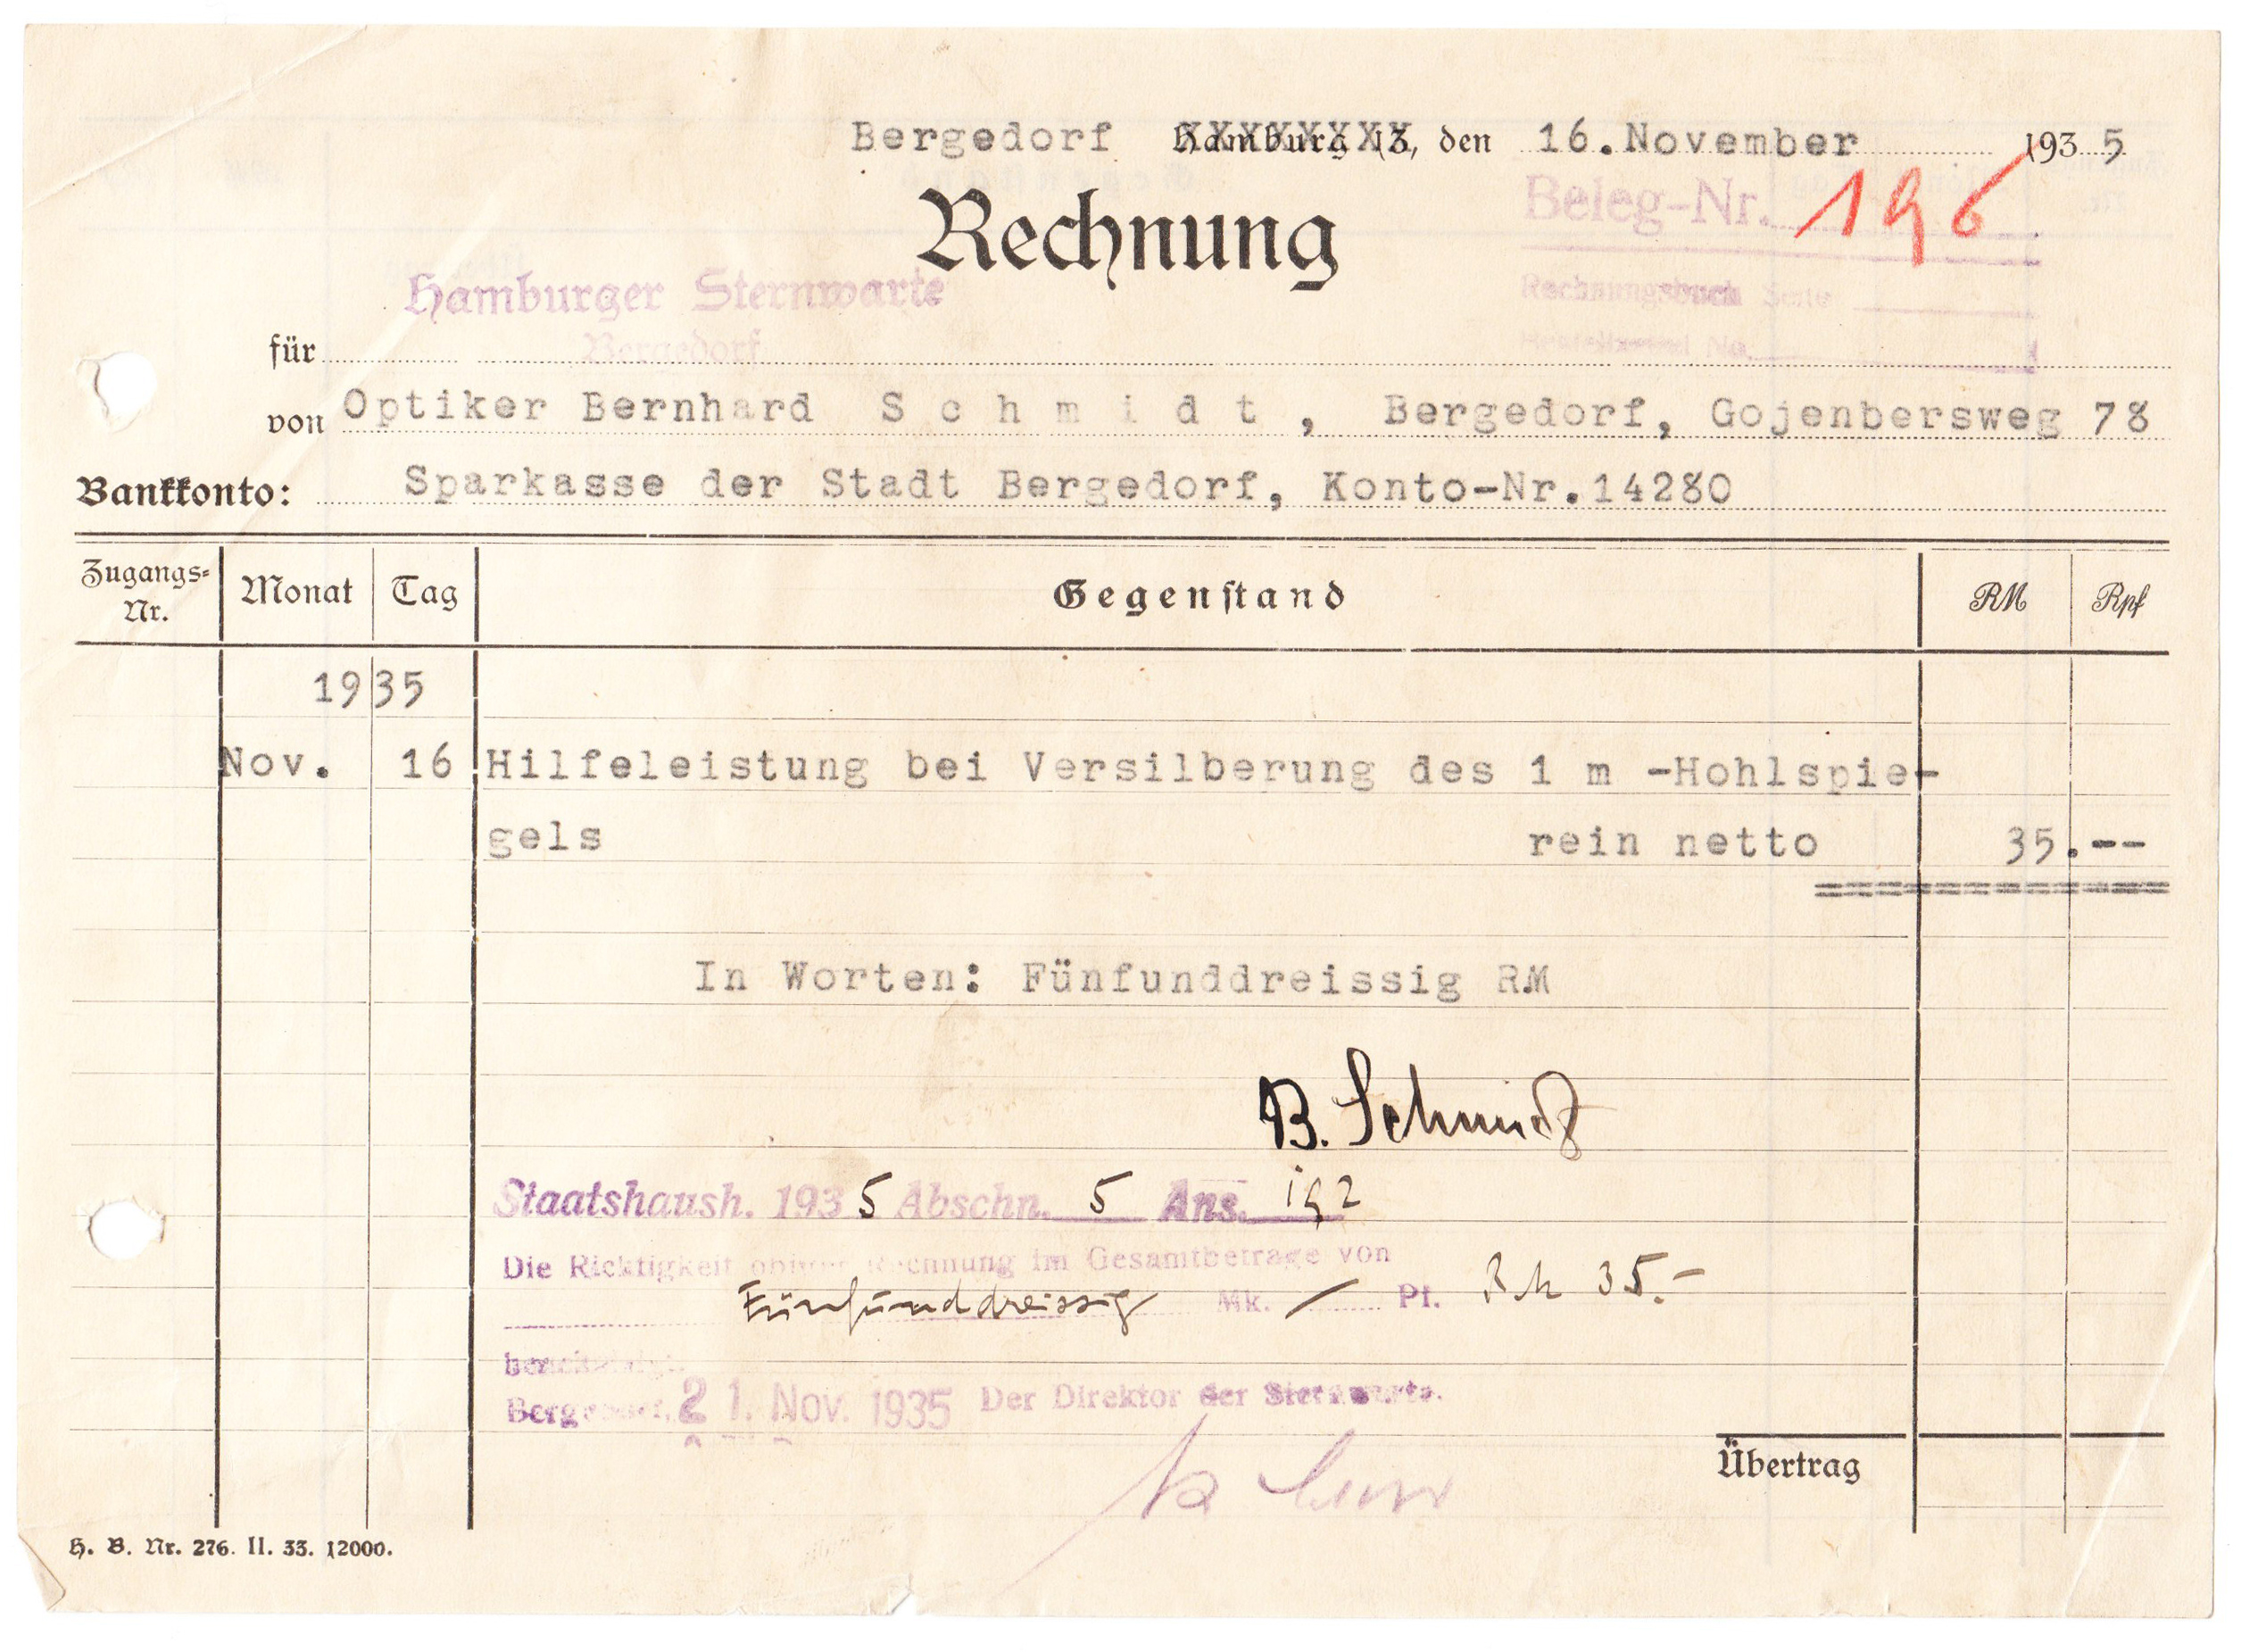 Bergedorf Hamburg 13, den 16.November 1935
Beleg-Nr. 196
Rechnung
Hamburger Sternwarte
Rechnungsbuch Seite
für Bergedorf
von Optiker Bernhard S c h m i d t , Bergedorf, Gojenbersweg 78
Bankkonto: Sparkasse der Stadt Bergedorf, Konto-Nr.14280
Zugangs-Nr. Monat Tag Gegenstand RM Rpf
1935
Nov. 16 Hilfeleistung bei Versilberung des 1 m -Hohlspie-
gels rein netto 35.--
In Worten: Fünfunddreissig RM
B. Schmidt
Staatshaush. 1935 Abschn. 5 Ans.
Die Richtigkeit obiger Rechnung im Gesamtbetrage von
Fünfunddreissig Mk. / Pf. RM 35.-
Bergedorf, 21. Nov. 1935 Der Direktor der Sternwarte.
Übertrag
H. B. Nr. 276. II. 33. 12000.